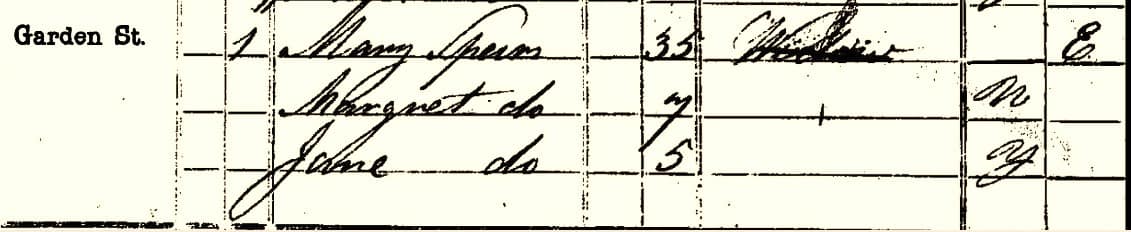 Garden St. 1 Mary Spurn 35 E
Margret do 7 M
Jane do 5 Y